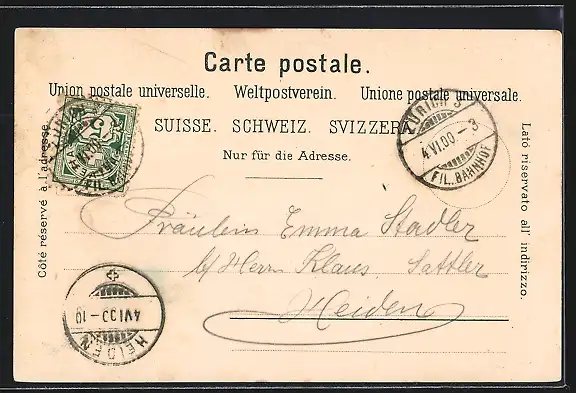 Carte postale.
Union postale universelle. Weltpostverein. Unione postale universale.
SUISSE. SCHWEIZ. SVIZZERA
Nur für die Adresse.
Côté réservé à l'adresse.
Lato riservato all' indirizzo.
ZÜRICH 3
4.VI.00.-3
FIL. BAHNHOF
Fräulein Emma Stadler
b/ Herrn Klaus, Sattler
Heiden
HEIDEN
4.VI.00.-10